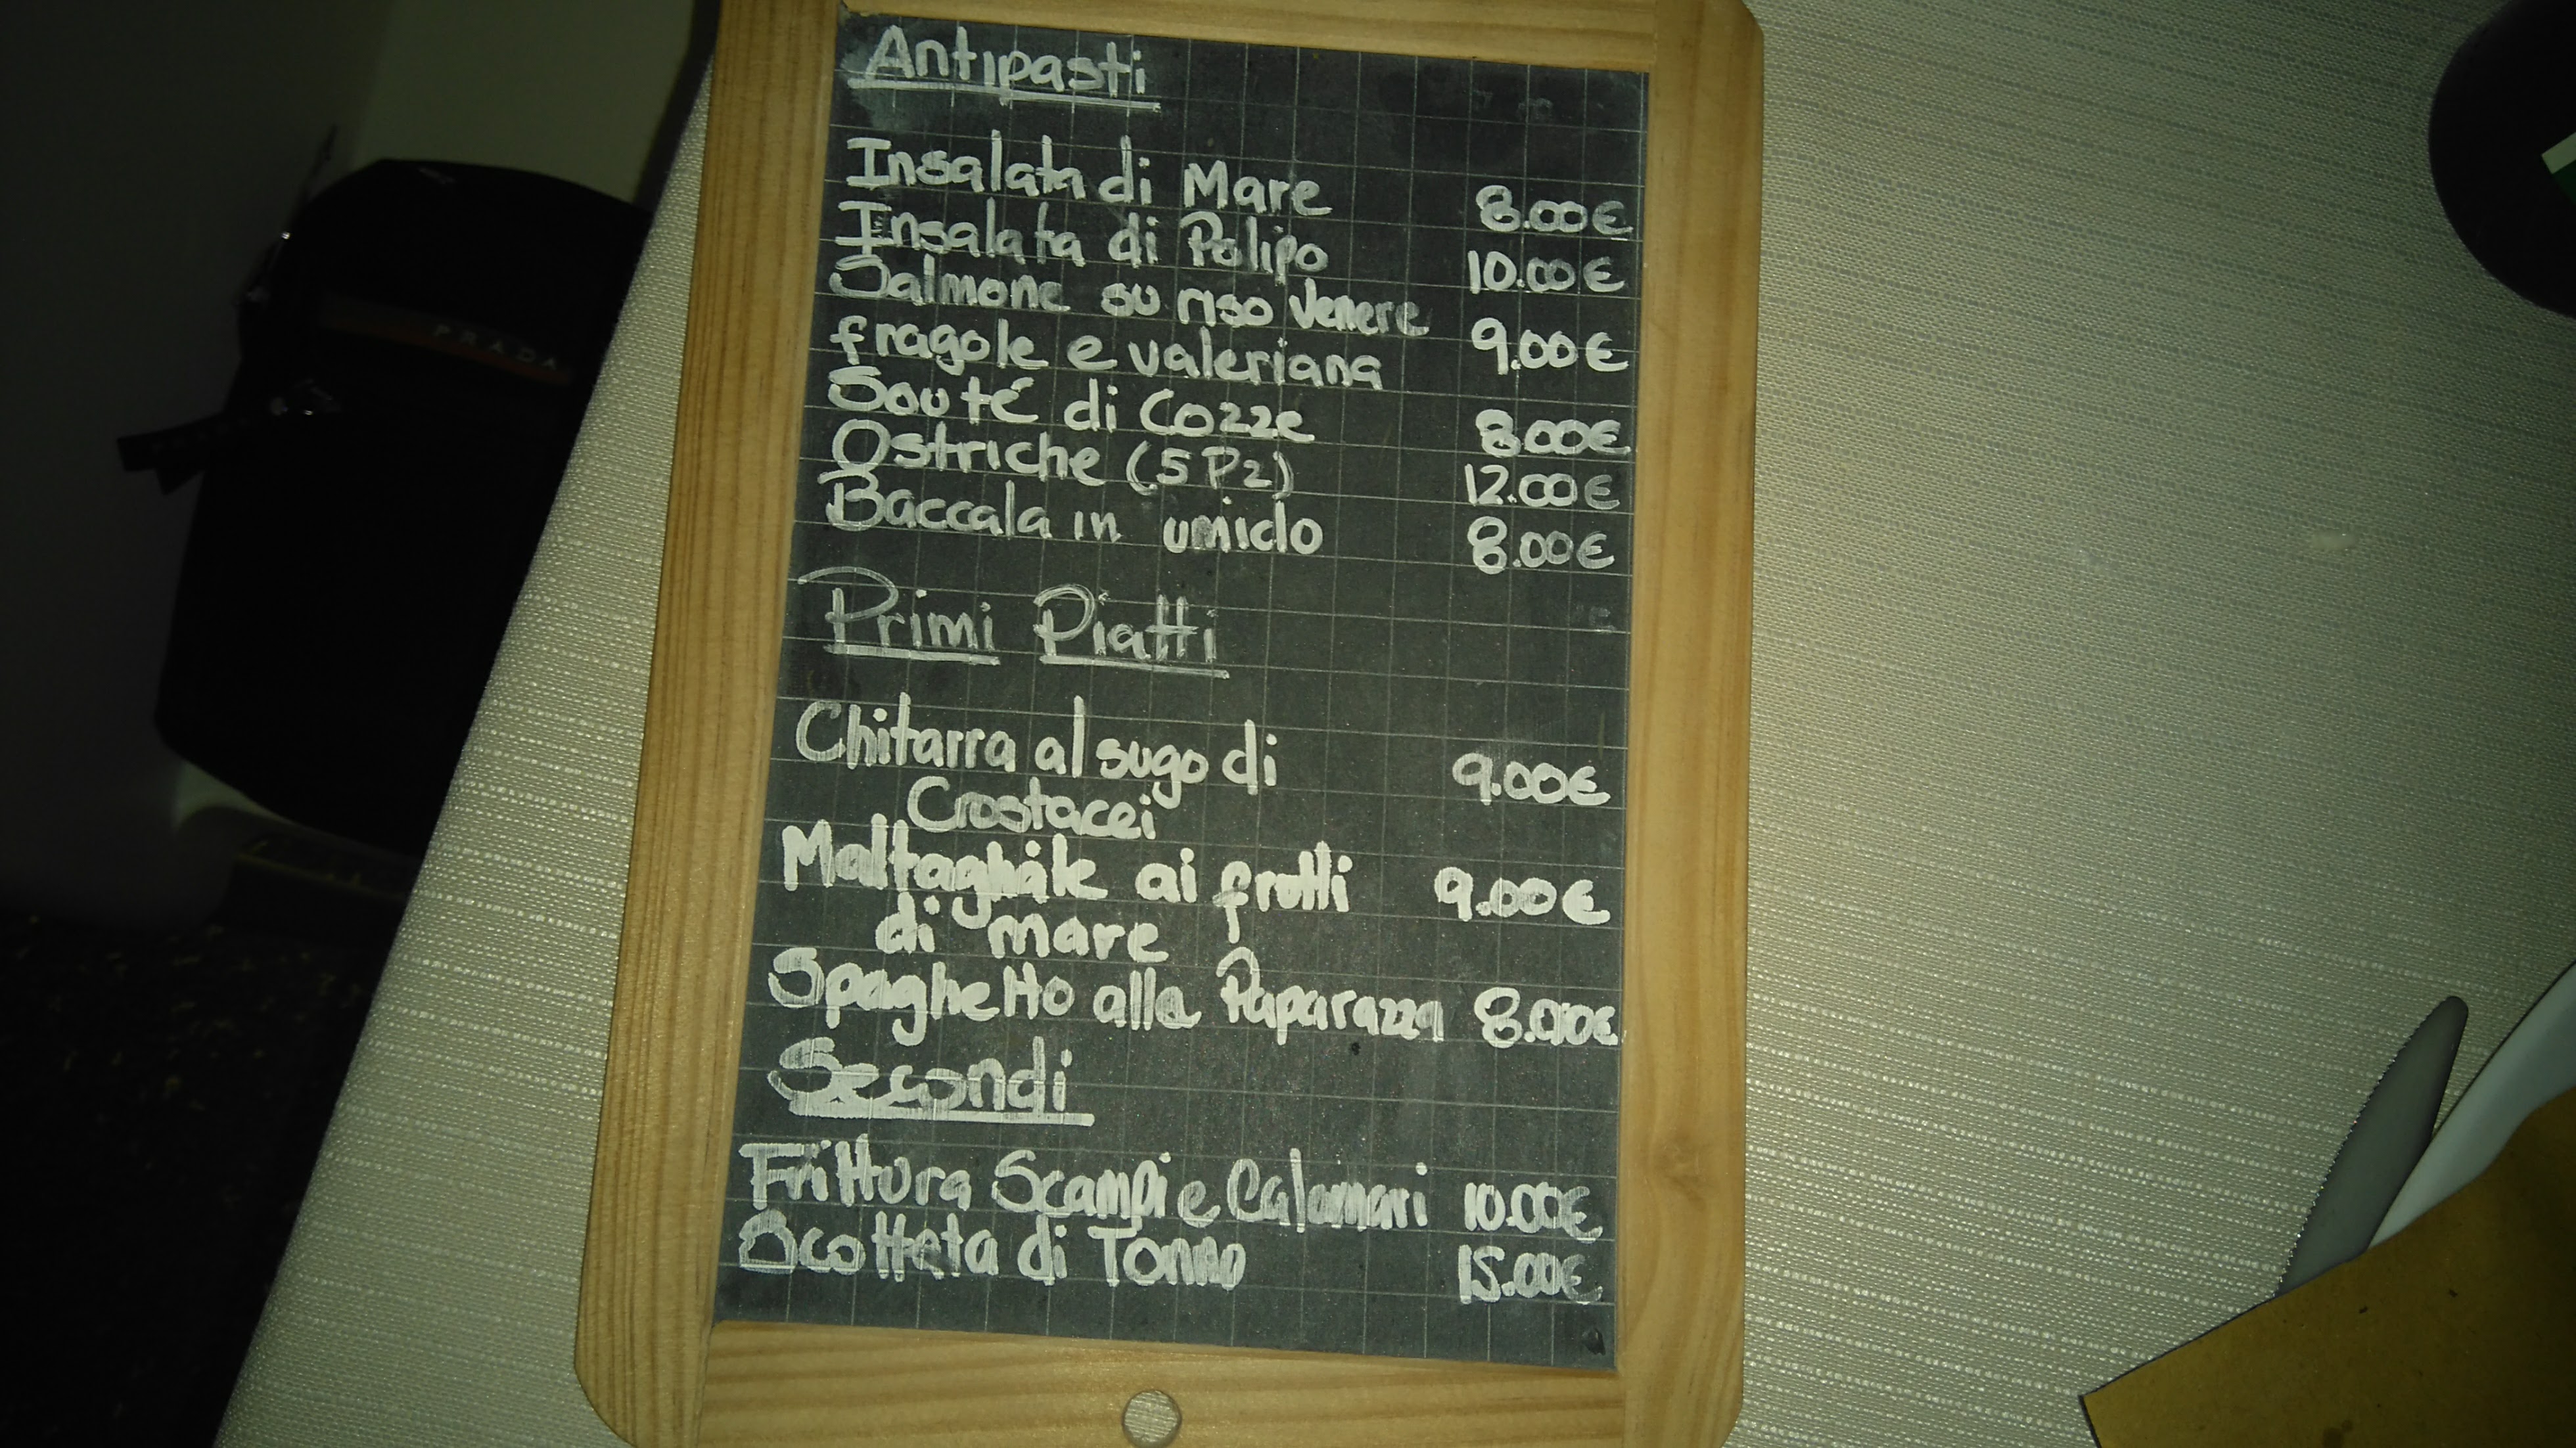 Antipasti
Insalata di Mare 8.00€
Insalata di Polipo 10.00€
Salmone su riso Venere
fragole e valeriana 9.00€
Souté di Cozze 8.00€
Ostriche (5 Pz) 12.00€
Baccala in umido 8.00€
Primi Piatti
Chitarra al sugo di 9.00€
Crostacei
ai frutti 9.00€
di mare
Spaghetto alla Paparazza 8.00€
Secondi
Frittura Scampi e Calamari 10.00€
Scottata di Tonno 15.00€
PRADA